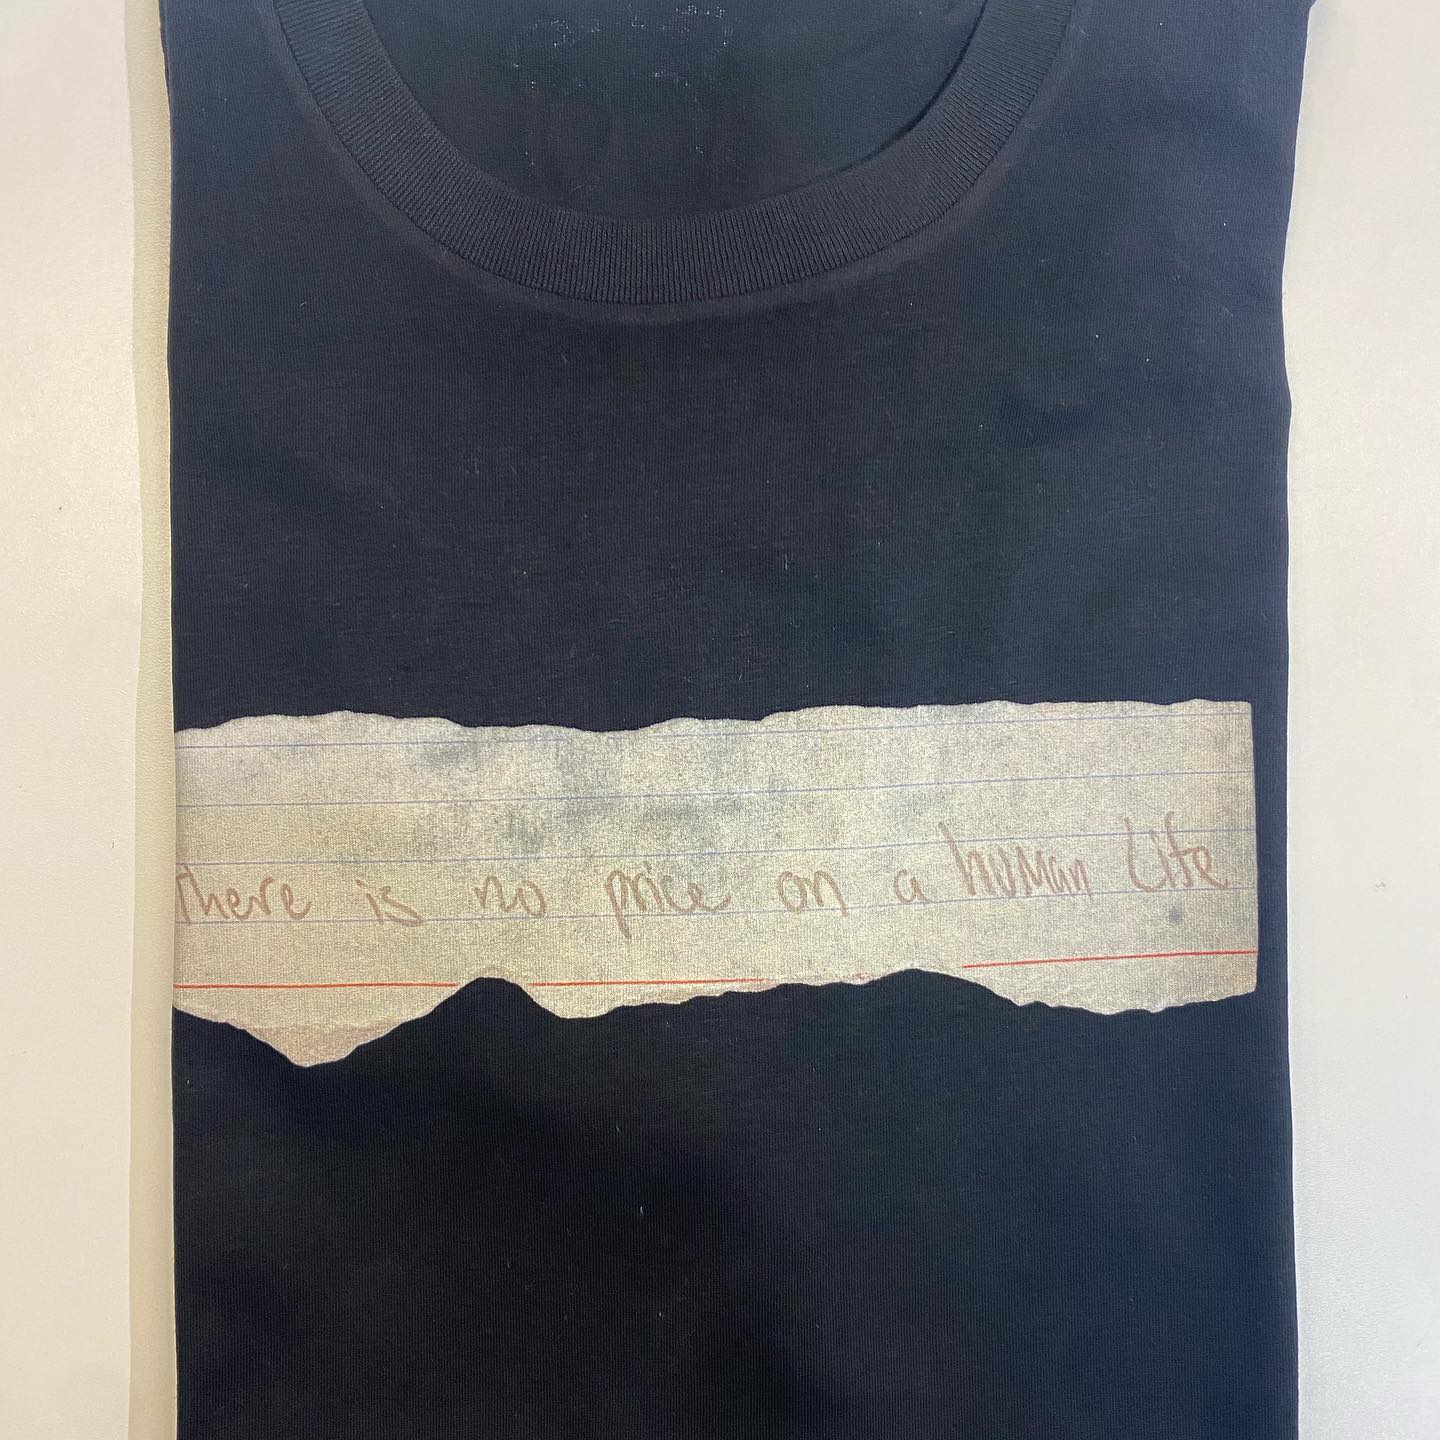 There is no price on a human life